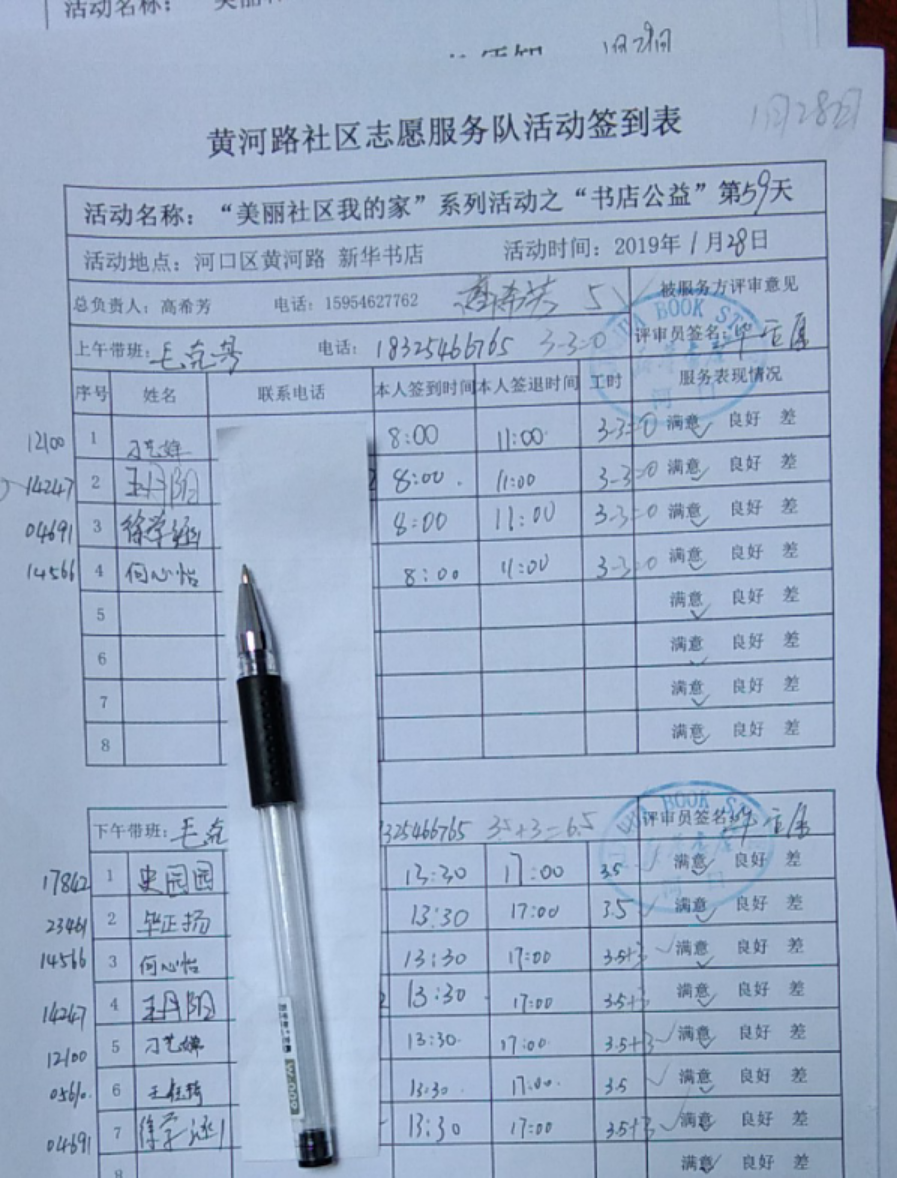 活动名称：
1月29日
1月28日
黄河路社区志愿服务队活动签到表
活动名称：“美丽社区我的家”系列活动之“书店公益”第59天
活动地点：河口区黄河路 新华书店 活动时间：2019年1月28日
总负责人：高希芳 电话：15954627762 高希芳 5 被服务方评审意见
上午带班： 电话：18325466765 3-3=0 评审员签名：
序号 姓名 联系电话 本人签到时间 本人签退时间 工时 服务表现情况
12100 1 刁艺婵 8:00 11:00 3-3=0 满意 良好 差
14247 2 王丹阳 8:00 11:00 3-3=0 满意 良好 差
04691 3 徐学涵 8:00 11:00 3-3=0 满意 良好 差
14566 4 何心怡 8:00 11:00 3-3=0 满意 良好 差
5 满意 良好 差
6 满意 良好 差
7 满意 良好 差
8 满意 良好 差
下午带班：毛克 325466765 3.5+3=6.5 评审员签名
17862 1 史园园 13:30 17:00 3.5 满意 良好 差
23461 2 毕正扬 13:30 17:00 3.5 满意 良好 差
14566 3 何心怡 13:30 17:00 3.5+3 满意 良好 差
14247 4 王丹阳 13:30 17:00 3.5+3 满意 良好 差
12100 5 刁艺婵 13:30 17:00 3.5+3 满意 良好 差
6 王 13:30 17:00 3.5 满意 良好 差
04691 7 徐学涵 13:30 17:00 3.5+3 满意 良好 差
8 满意 良好 差